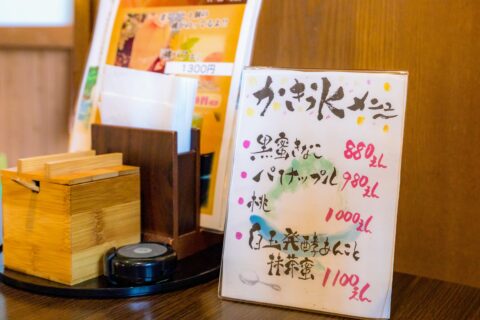 1300円
かき氷 メニュー
・黒蜜きなこ 880えん
・パイナップル 980えん
・桃 1000えん
・白玉発酵あんこと
抹茶蜜 1100えん